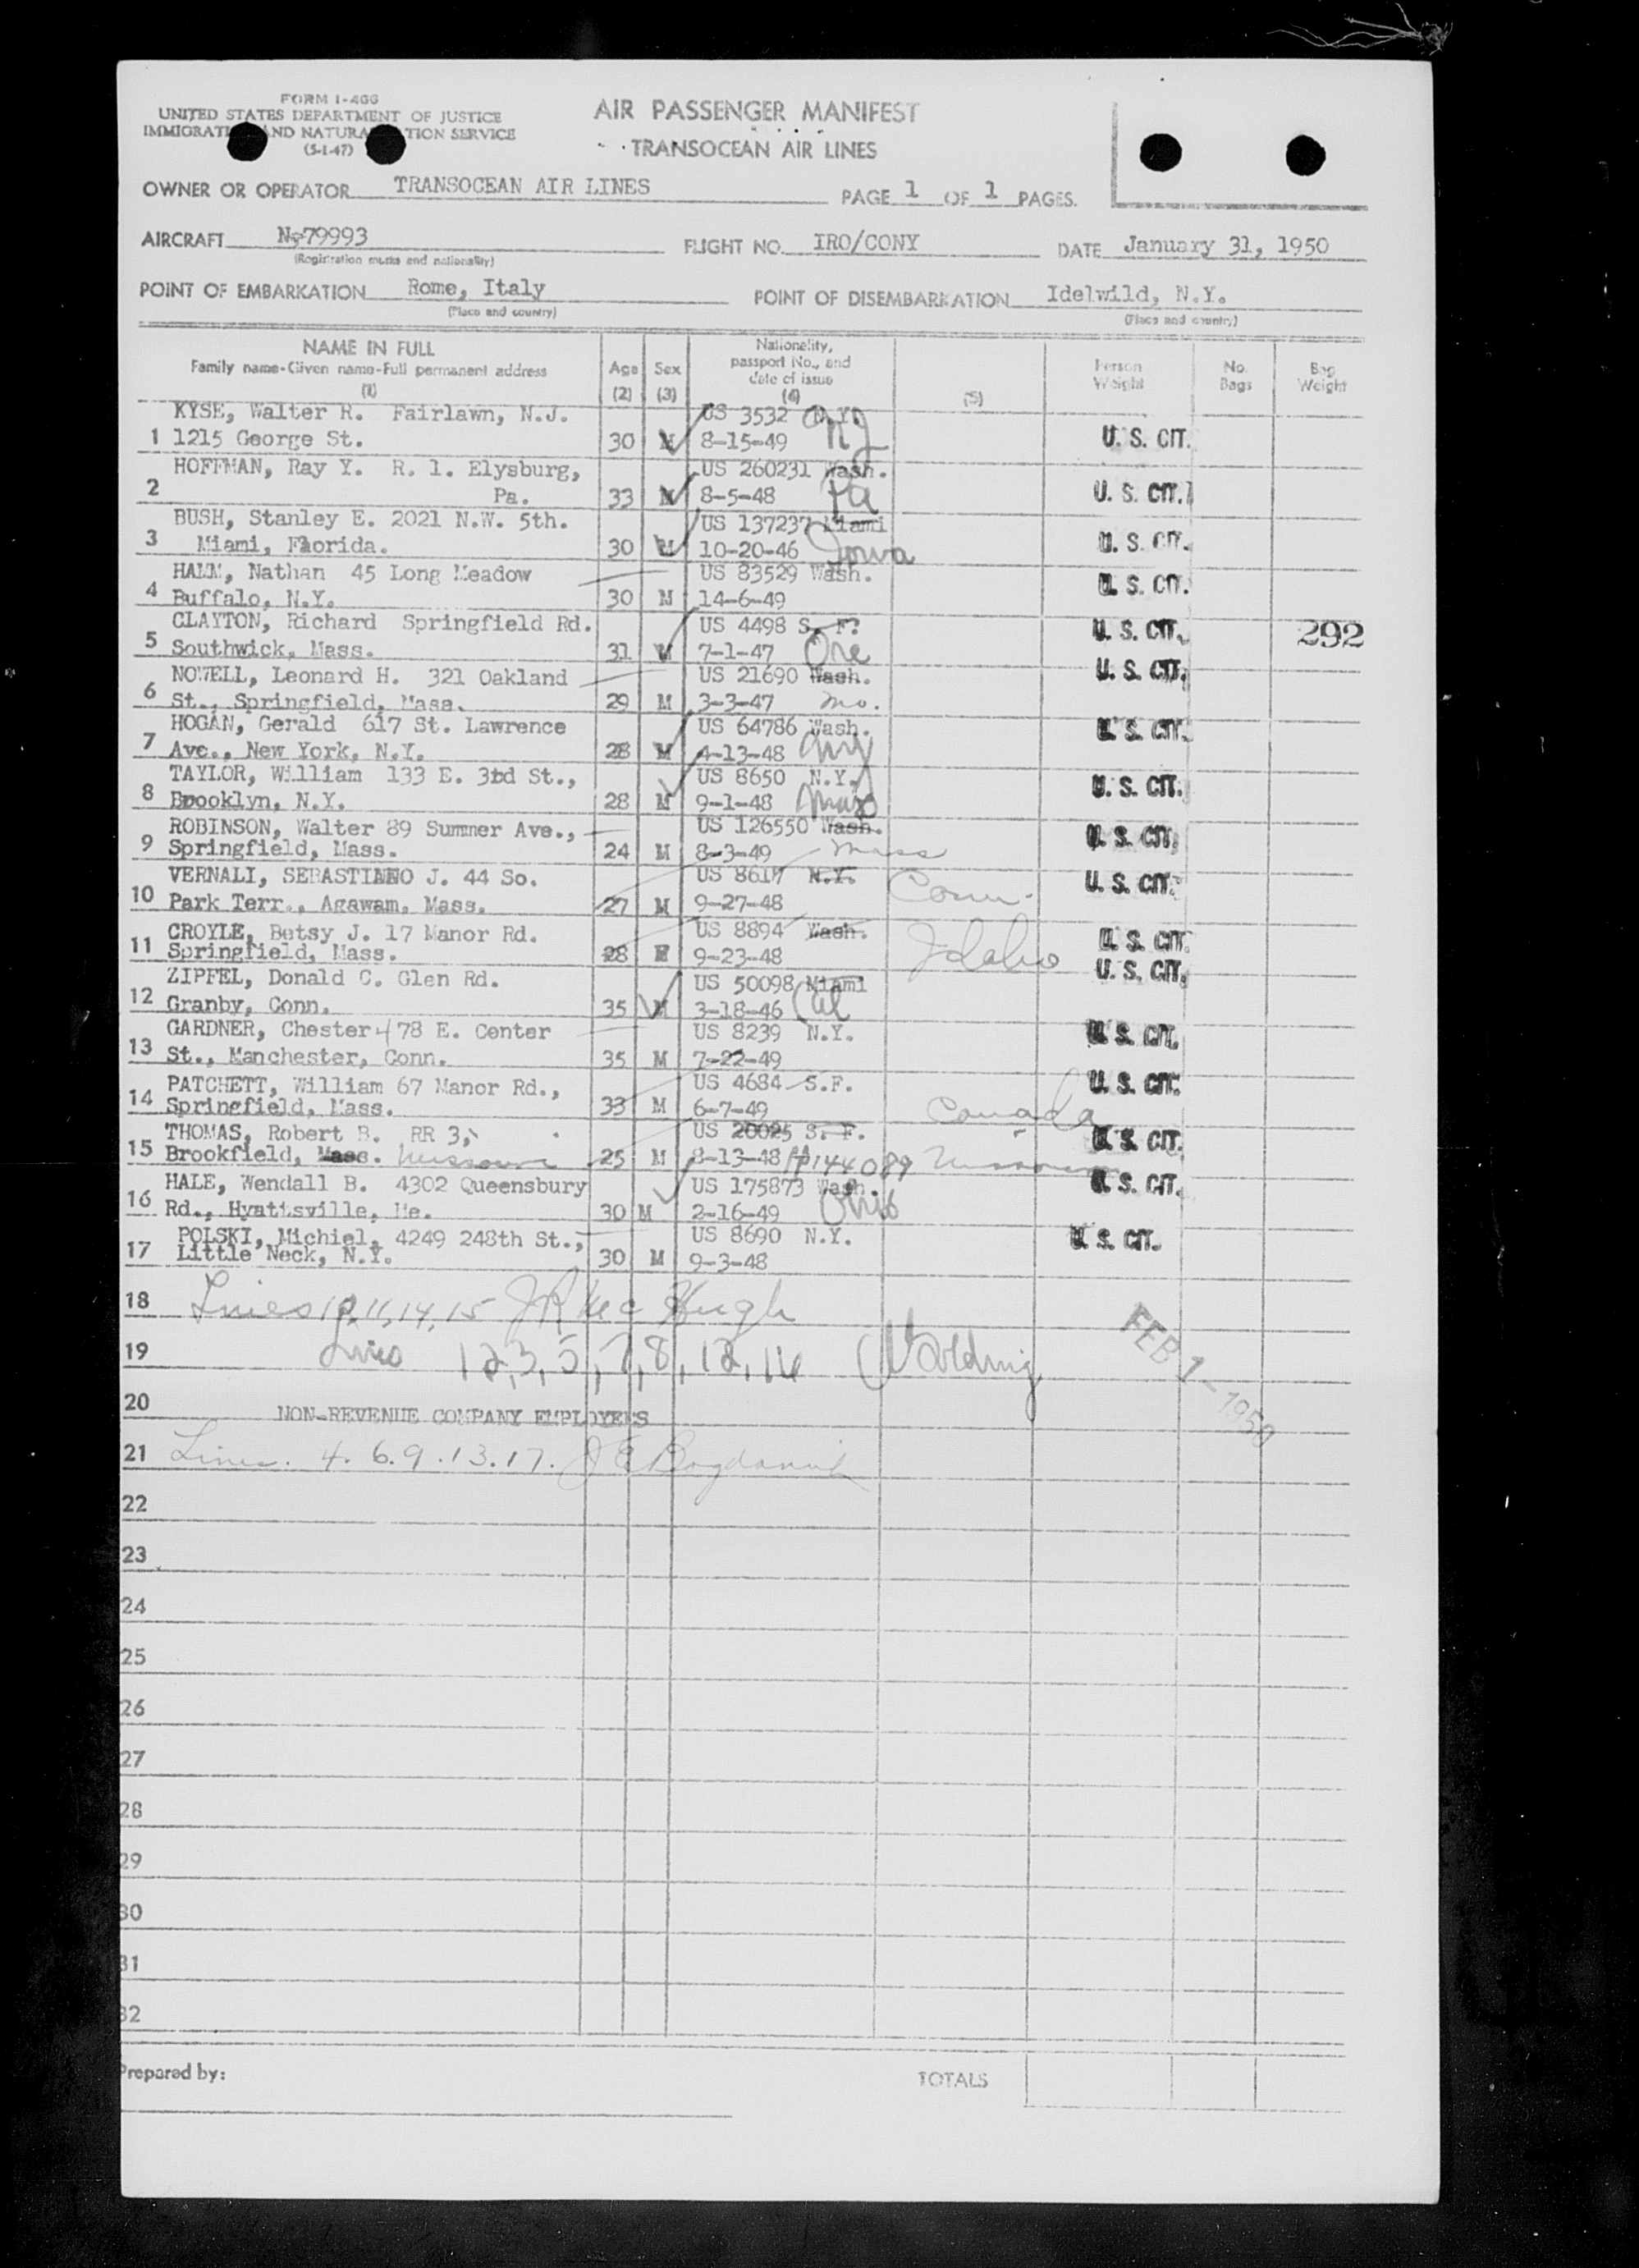 FORM I-466
UNITED STATES DEPARTMENT OF JUSTICE
IMMIGRATI ND NATURA TION SERVICE
(5-1-47)
AIR PASSENGER MANIFEST
TRANSOCEAN AIR LINES
OWNER OR OPERATOR TRANSOCEAN AIR LINES PAGE 1 OF 1 PAGES.
AIRCRAFT N-79993 FLIGHT NO. IRO/CONY DATE January 31, 1950
(Registration marks and nationality)
POINT OF EMBARKATION Rome, Italy POINT OF DISEMBARKATION Idelwild, N.Y.
(Place and country) (Place and country)
NAME IN FULL
Family name-Given name-Full permanent address
(1)
Age
(2)
Sex
(3)
Nationality,
passport No., and
date of issue
(4)
(5)
Person
Weight
No.
Bags
Bag
Weight
KYSE, Walter R. Fairlawn, N.J. US 3532 N.Y.
1 1215 George St. 30 M 8-15-49 NJ U. S. CIT.
HOFFMAN, Ray Y. R. 1. Elysburg, US 260231 Wash.
2 Pa. 33 M 8-5-48 Pa U. S. CIT.
BUSH, Stanley E. 2021 N.W. 5th. US 137237 Miami
3 Miami, Florida. 30 M 10-20-46 Iowa U. S. CIT.
Nathan 45 Long Meadow US 83529 Wash.
4 Buffalo, N.Y. 30 M 14-6-49 U. S. CIT.
CLAYTON, Richard Springfield Rd. US 4498 S. F.
5 Southwick, Mass. 31 M 7-1-47 Ore U. S. CIT. 292
NOWELL, Leonard H. 321 Oakland US 21690 Wash. U. S. CIT.
6 St., Springfield, Mass. 29 M 3-3-47 Mo.
HOGAN, Gerald 617 St. Lawrence US 64786 Wash. U. S. CIT.
7 Ave., New York, N.Y. 28 M 4-13-48 NY
TAYLOR, William 133 E. 3rd St., US 8650 N.Y. U. S. CIT.
8 Brooklyn, N.Y. 28 M 9-1-48 Mass
ROBINSON, Walter 89 Sumner Ave., US 126550 Wash. U. S. CIT.
9 Springfield, Mass. 24 M 8-3-49 Mass
VERNALI, SEBASTIANO J. 44 So. US 8617 N.Y. Conn. U. S. CIT.
10 Park Terr., Agawam, Mass. 27 M 9-27-48
CROYLE, Betsy J. 17 Manor Rd. US 8894 Wash. Idaho U. S. CIT.
11 Springfield, Mass. 28 F 9-23-48
ZIPFEL, Donald C. Glen Rd. US 50098 Miami U. S. CIT.
12 Granby, Conn. 35 M 3-18-46 Cal
GARDNER, Chester 478 E. Center US 8239 N.Y. U. S. CIT.
13 St., Manchester, Conn. 35 M 7-22-49
PATCHETT, William 67 Manor Rd., US 4684 S.F. U. S. CIT.
14 Springfield, Mass. 33 M 6-7-49 Canada
THOMAS, Robert B. RR 3, US 20025 S. F. U. S. CIT.
15 Brookfield, Mass. Missouri 25 M 8-13-48 PP144089 Missouri
HALE, Wendall B. 4302 Queensbury US 175873 Wash. U. S. CIT.
16 Rd., Hyattsville, Me. 30 M 2-16-49 Ohio
POLSKI, Michiel, 4249 248th St., US 8690 N.Y. U. S. CIT.
17 Little Neck, N.Y. 30 M 9-3-48
18 Lines 10, 11, 14, 15
19 Lines 1 2, 3, 5, 7, 8, 12, 16
FEB 1 - 1950
20 NON-REVENUE COMPANY EMPLOYEES
21 Lines. 4. 6. 9. 13. 17.
22
23
24
25
26
27
28
29
30
31
32
Prepared by: TOTALS